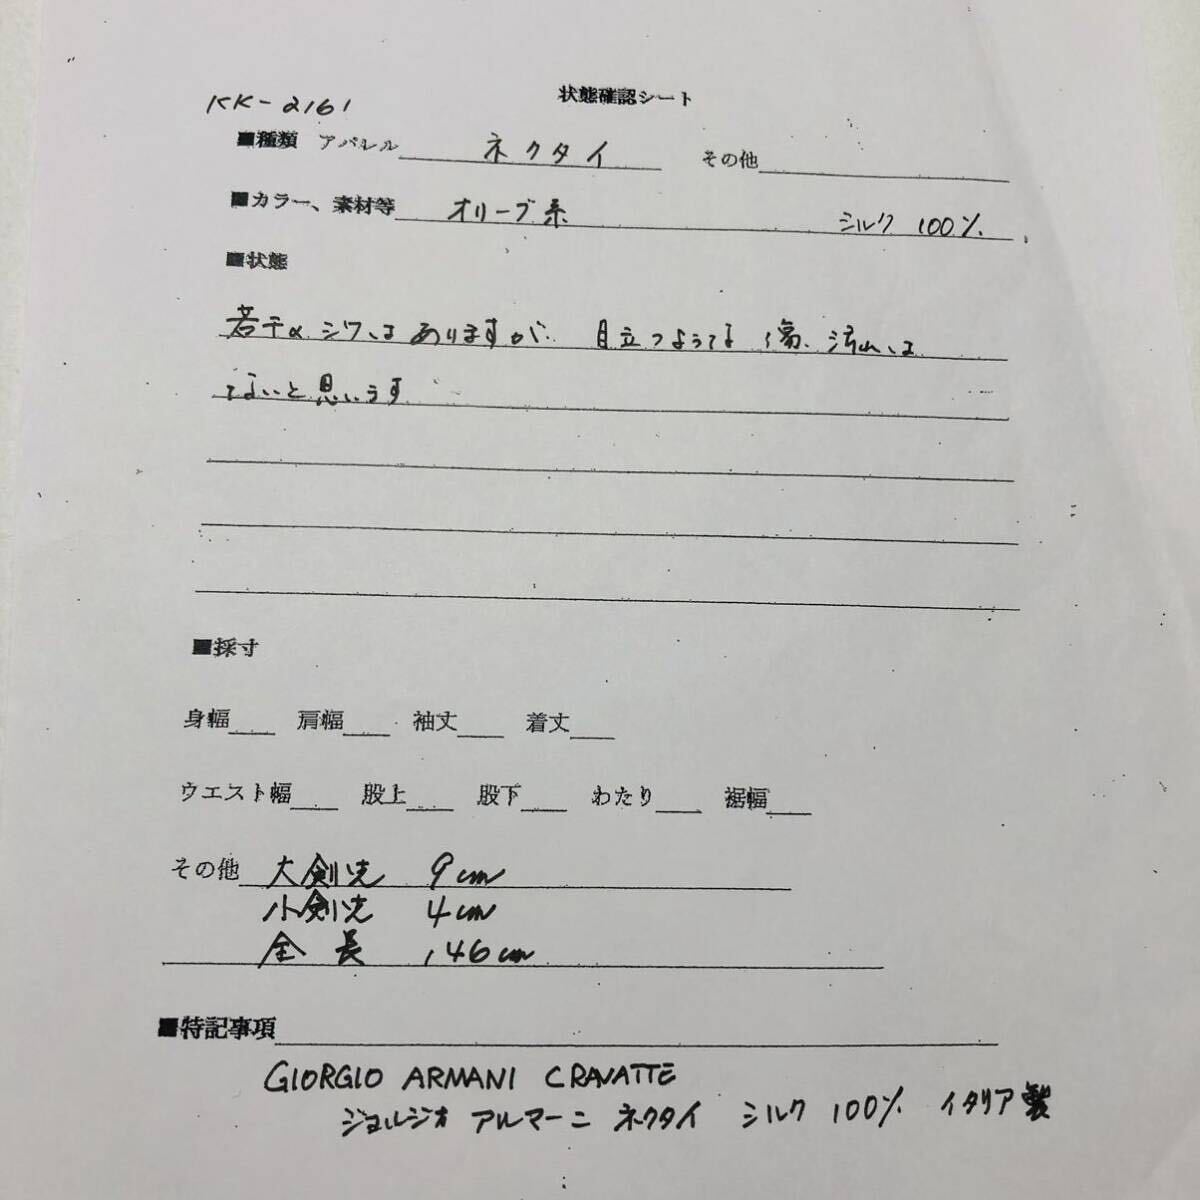 状態確認シート
KK-2161
■種類 アパレル ネクタイ その他
■カラー、素材等 オリーブ系 シルク 100%
■状態
若干のシワはありますが、目立つような傷、汚れは
ないと思います
■採寸
身幅 肩幅 袖丈 着丈
ウエスト幅 股上 股下 わたり 裾幅
その他 大剣先 9cm
小剣先 4cm
全長 146cm
■特記事項
GIORGIO ARMANI CRAVATTE
ジョルジオ アルマーニ ネクタイ シルク 100% イタリア製